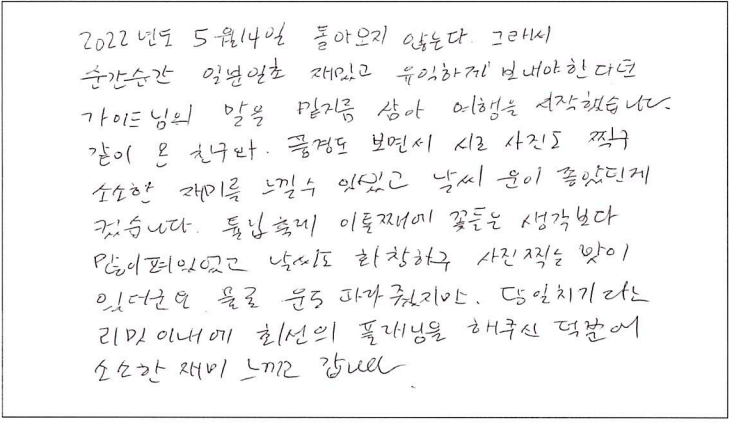 2022년도 5월14일 돌아오지 않는다. 그래서
순간순간 일분일초 재밌고 유익하게 보내야한다던
가이드님의 말을 밑지름 삼아 여행을 시작했습니다.
같이 온 친구와. 풍경도 보면서 서로 사진도 찍구
소소한 재미를 느낄수 있었고 날씨 운이 좋았던게
컸습니다. 튤립축제 이틀째에 꽃들은 생각보다
많이펴있었고 날씨도 화창하구 사진찍는 맛이
있더군요 물론 운도 따라줬지만. 당일치기라는
리밋 이내에 최선의 플래닝을 해주신 덕분에
소소한 재미 느끼고 갑니다